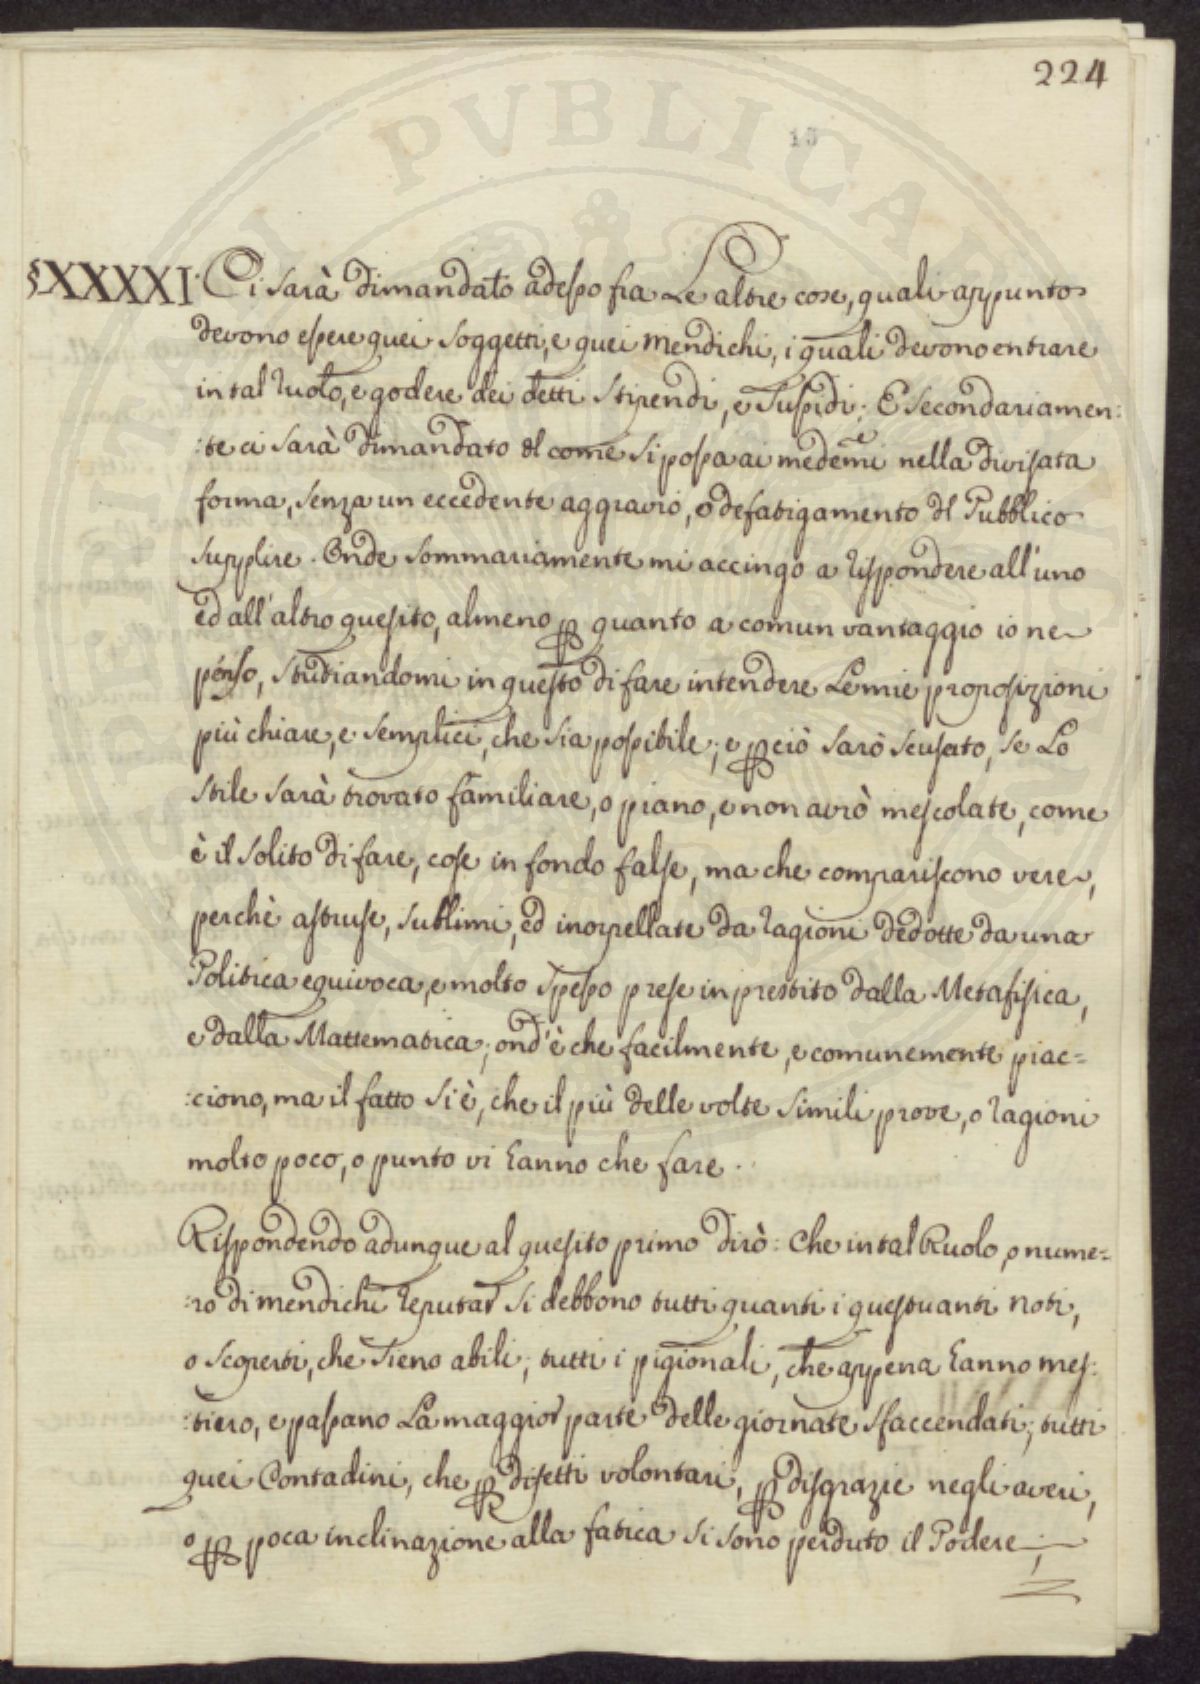 224
15
§XXXXI. Ci sarà dimandato adesso fra Le altre cose, quali appunto
devono essere quei soggetti, e quei Mendichi, i quali devono entrare
in tal Ruolo, e godere dei detti stipendi, e sussidi; E secondariamen:
:te ci sarà dimandato el come si possa ai medemi nella divisata
forma, senza un eccedente aggravio, o defatigamento del Pubblico
supplire. Onde sommariamente mi accingo a rispondere all'uno
ed all'altro quesito, almeno p quanto a comun vantaggio io ne
penso, studiandomi in questo di fare intendere Le mie proposizioni
più chiare, e semplici, che sia possibile; e pciò sarò scusato, se Lo
stile sarà trovato familiare, o piano, e non avrò mescolate, come
è il solito di fare, cose in fondo false, ma che compariscono vere,
perchè astruse, sublimi, ed inorpellate da ragioni dedotte da una
Politica equivoca, e molto spesso prese in prestito dalla Metafisica,
e dalla Mattematica; ond'è che facilmente, e comunemente piac=
:ciono, ma il fatto si è, che il più delle volte simili prove, o ragioni
molto poco, o punto vi hanno che fare.
Rispondendo adunque al quesito primo dirò: Che in tal Ruolo, o nume=
:ro di mendichi reputar si debbono tutti quanti i questuanti noti,
o scoperti, che sieno abili; tutti i pigionali, che appena hanno mes:
:tiero, e passano La maggior parte delle giornate sfaccendati; tutti
quei Contadini, che p difetti volontari, p disgrazie negli averi,
o p poca inclinazione alla fatica si sono perduto il Podere;